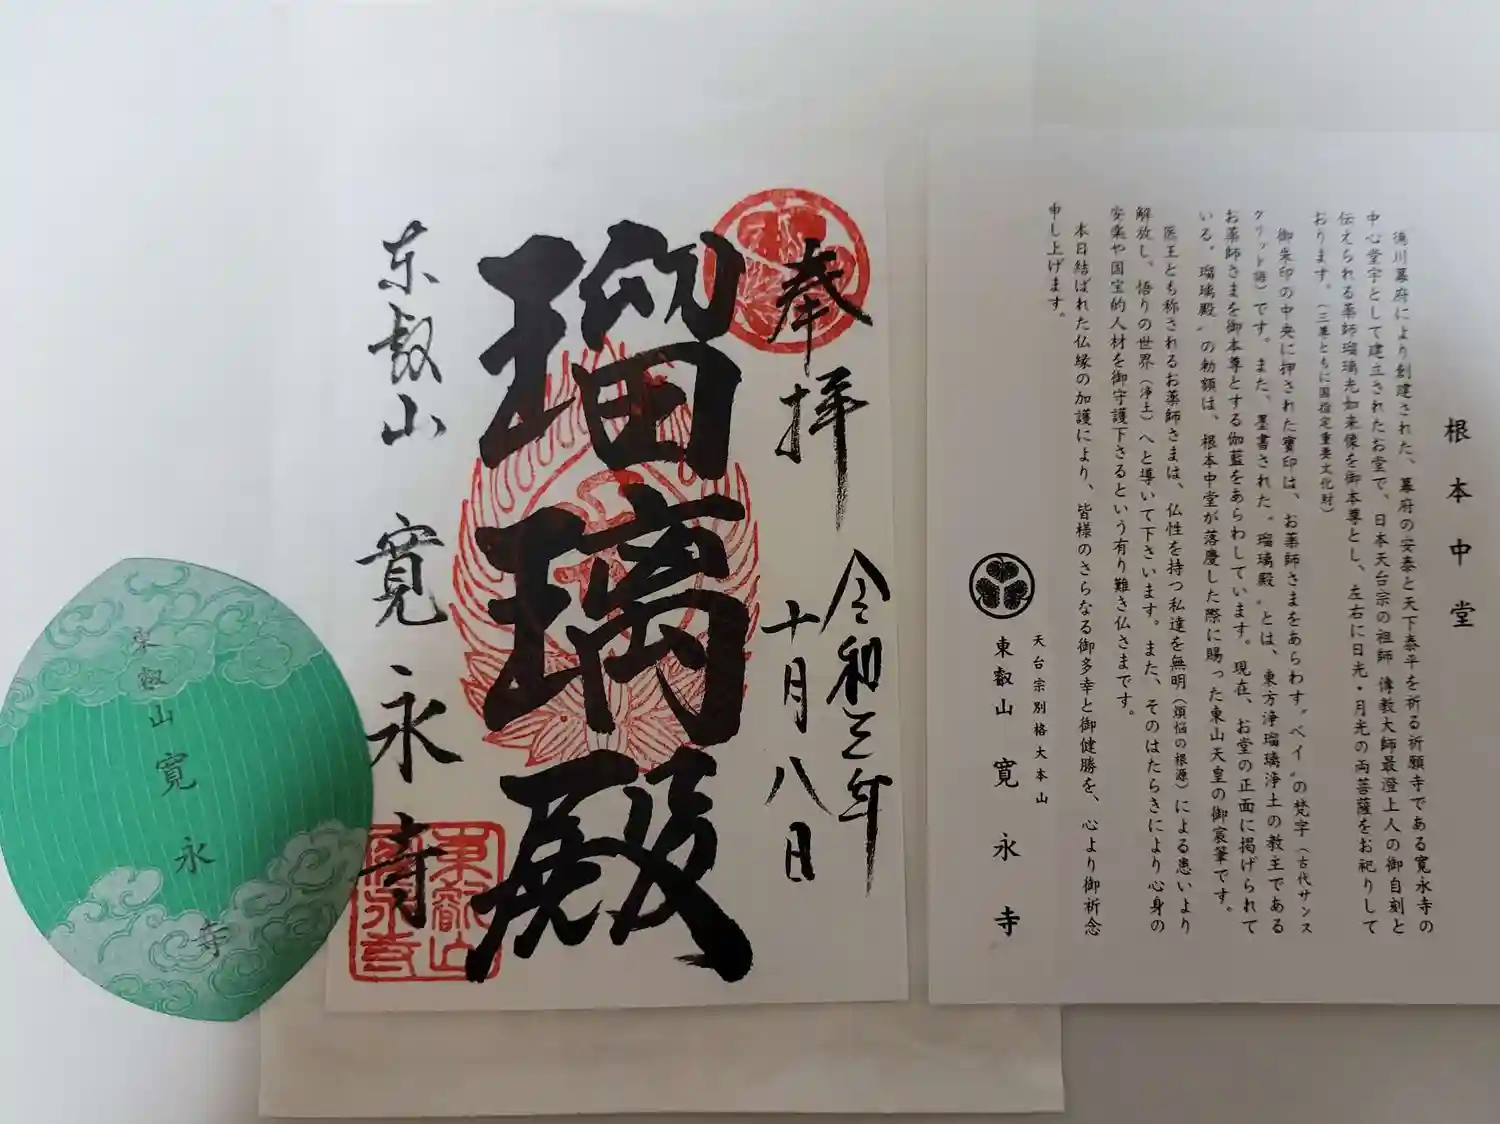 根本中堂
徳川幕府により創建された、幕府の安泰と天下泰平を祈る祈願寺である寛永寺の
中心堂宇として建立されたお堂で、日本天台宗の祖師 傳教大師最澄上人の御自刻と
伝えられる薬師瑠璃光如来像を御本尊とし、左右に日光・月光の両菩薩をお祀りして
おります。（三尊ともに国指定重要文化財）
御朱印の中央に押された寶印は、お薬師さまをあらわす〝ベイ〟の梵字（古代サンス
クリット語）です。また、墨書された〝瑠璃殿〟とは、東方浄瑠璃浄土の教主である
お薬師さまを御本尊とする伽藍をあらわしています。現在、お堂の正面に掲げられて
いる〝瑠璃殿〟の勅額は、根本中堂が落慶した際に賜った東山天皇の御宸筆です。
医王とも称されるお薬師さまは、仏性を持つ私達を無明（煩悩の根源）による患いより
解放し、悟りの世界（浄土）へと導いて下さいます。また、そのはたらきにより心身の
安楽や国宝的人材を御守護下さるという有り難き仏さまです。
本日結ばれた仏縁の加護により、皆様のさらなる御多幸と御健勝を、心より御祈念
申し上げます。
天台宗別格大本山
東叡山 寛永寺
奉拝
令和三年
十月八日
瑠璃殿
东叡山 寛永寺
東叡山
寛永寺
東叡山寛永寺